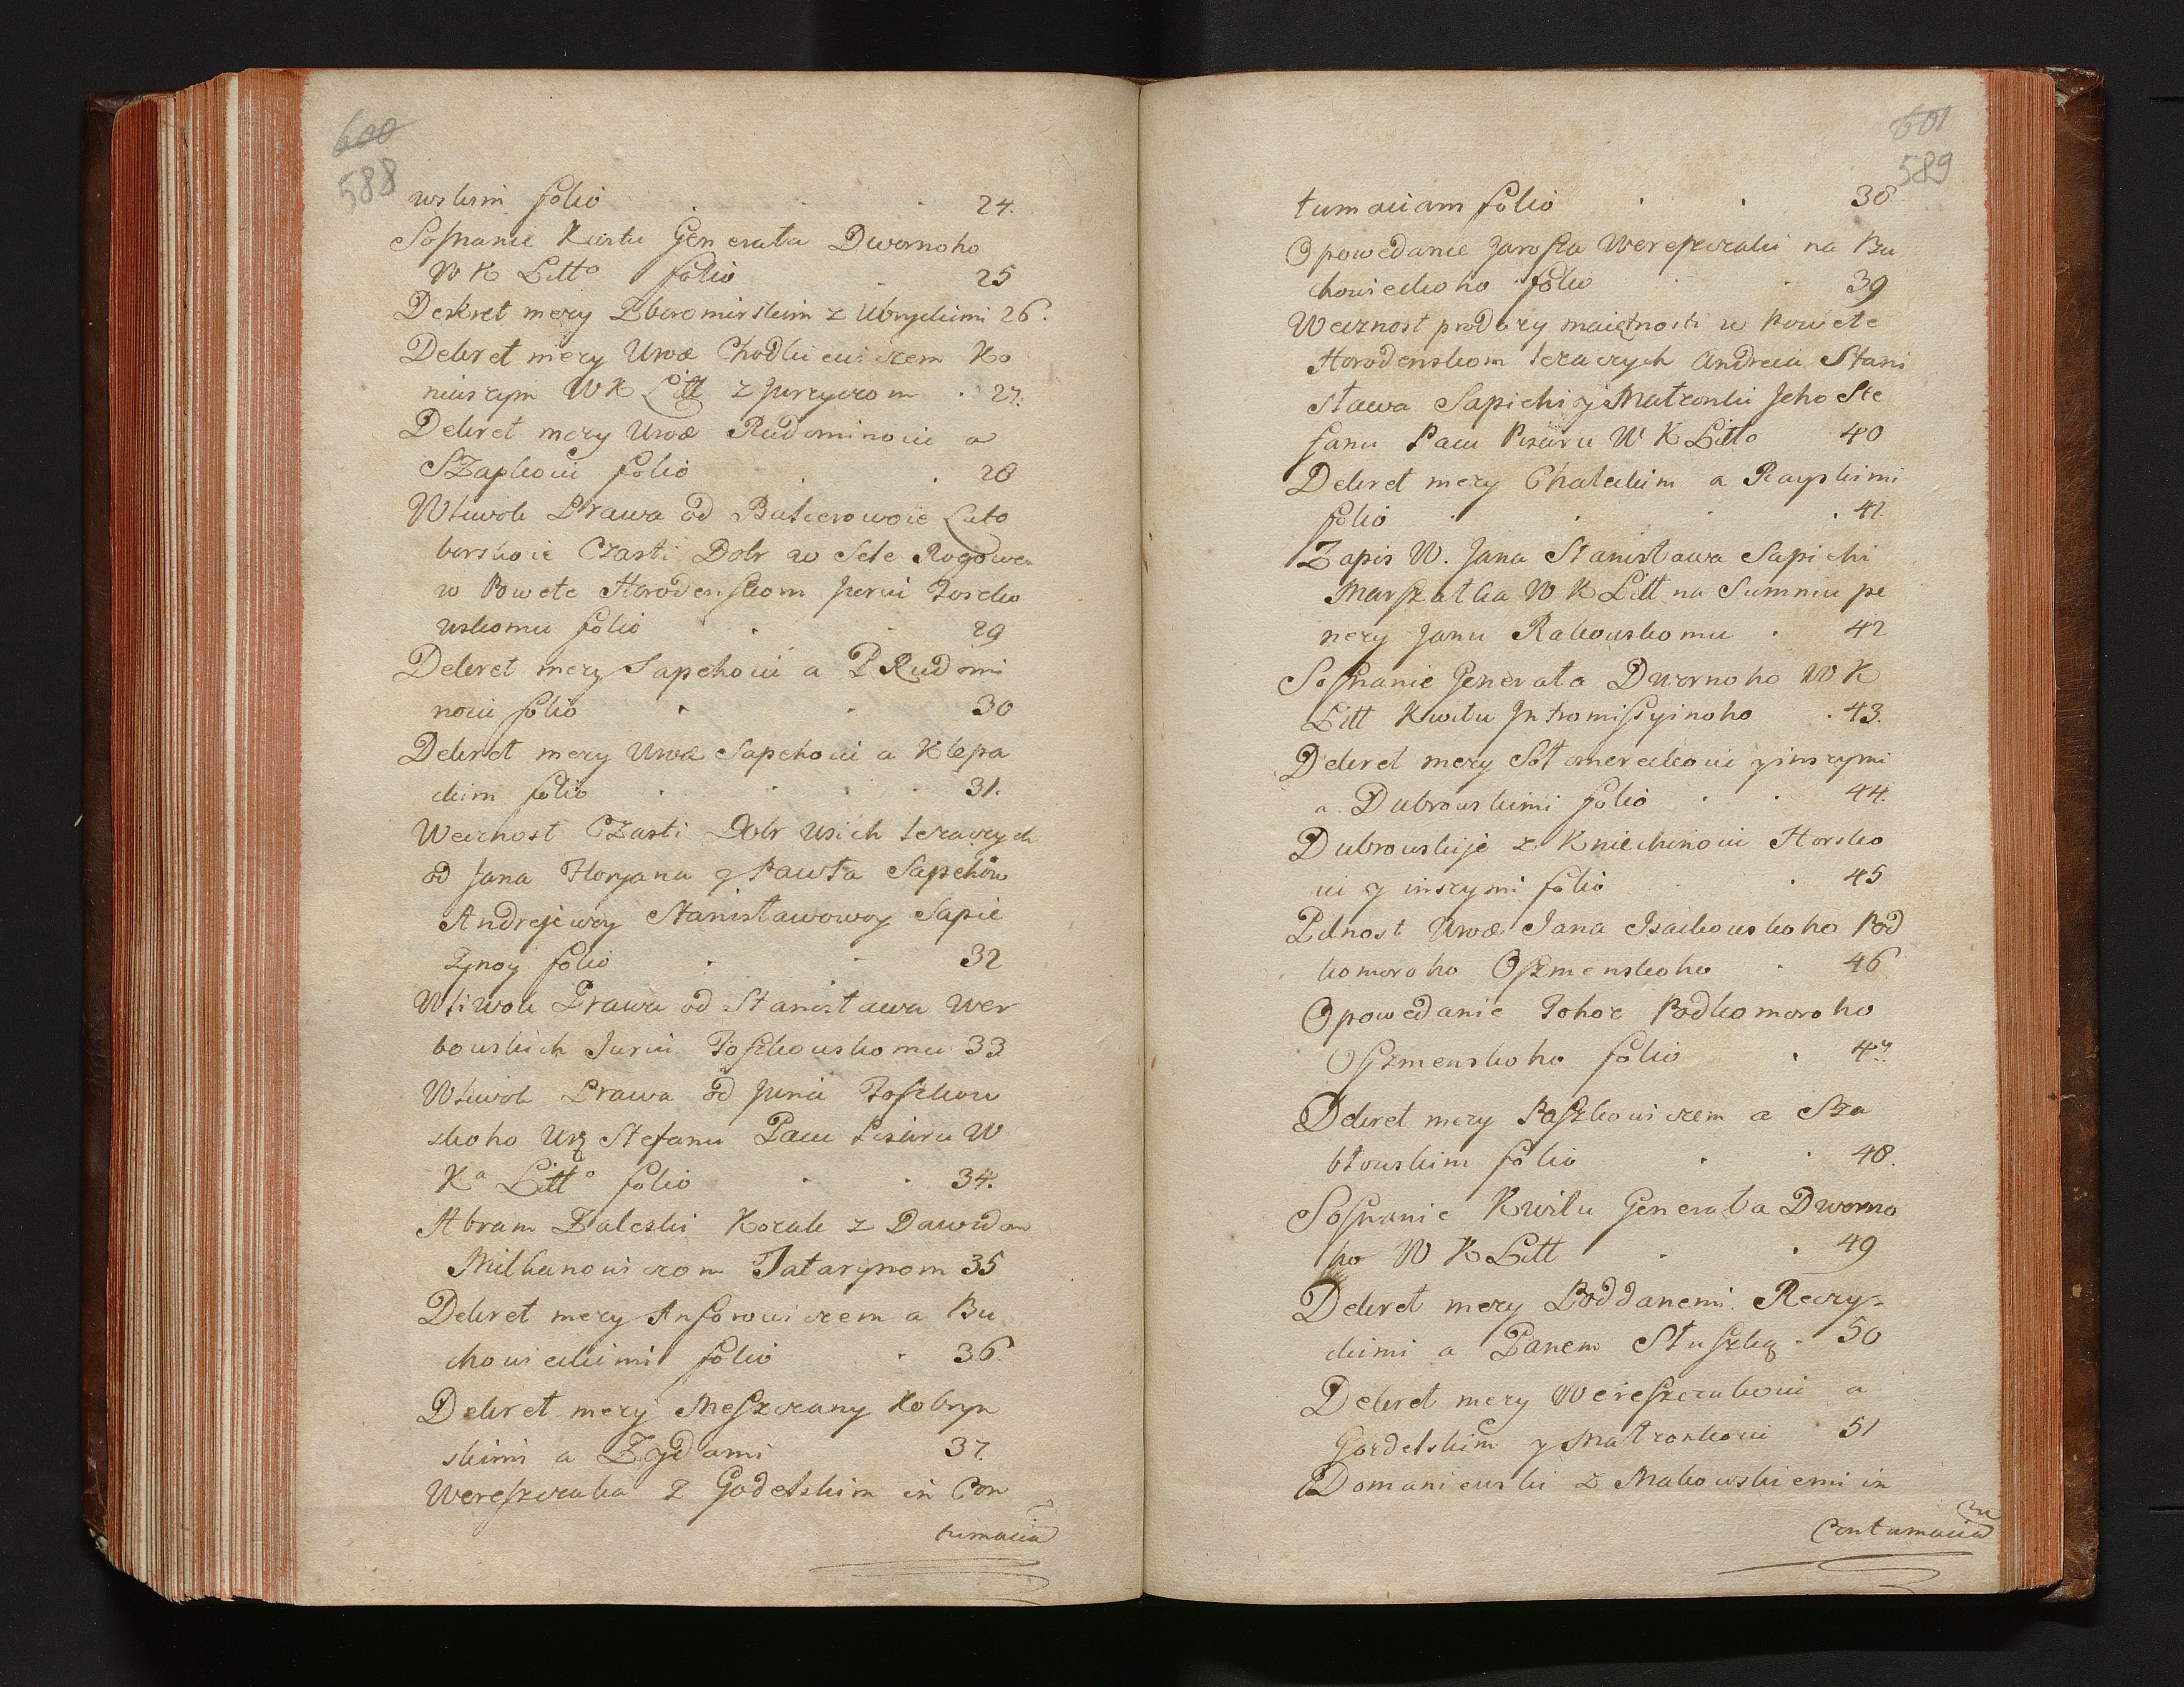 600
588
wskim folio . . . 24.
Soznanie Kwitu Generała Dwornoho
W K Litt° folio . 25
Dekret mezy Zboromirskim z Ubryckimi 26.
Dekret mezy Urodz Chodkiewiczem Ko
niuszym WK Litt z Jurzyczom . 27.
Dekret mezy Urodz Rudominowi a
SZapkowi folio . . 28
Wliwok Prawa od Butlerowoie Luto
borskoie Czasti Dobr w Sele Rogowe
w Powete Horodenskom Jurui Toszko
wskomu folio . . 29
Dekret mezy Sapehowi a P Rudomi
nowi folio . . 30
Dekret mezy Urodz Sapehowi a Klepa
ckim folio . . . . 31.
Wecznost CZasti Dobr usich lezaczych
od Jana Floryana y Pawła Sapehow
Andrejewoy Stanisławowoy Sapie
zynoy folio . . 32
Wliwok Prawa od Stanisława Wer
bouskich Jurui Toszkouskomu 33
Wliwok Prawa od Juria Toszkow
skoho Urz Stefanu Pacu Pisaru W
K° Litt° folio . . 34.
Abram Zaleski Kozak z Dawidom
Milkanowiczom Tatarynom 35
Dekret mezy Anforowiczem a Bu
chowieckimi folio . 36.
Dekret mezy Meszczany Kobryn
skimi a Zydami 37.
Wereszczaka z Godelskim in Con
tumacia
601
589
tumaciam folio . . 38
Opowedanie Jarosza Wereszczaki na Bu
chowieckoho folio . . 39
Wecznost prodazy maiętnosti w Powete
Horodenskom lezaczych Andreia Stani
sława Sapiehi y Matronki Jeho Ste
fanu Pacu Pisaru W K Litto 40
Dekret mezy Chaleckim a Rayskimi
folio . . . . 41.
Zapis W. Jana Stanisława Sapiehi
Marszałka W K Litt na Summu pe
nezy Janu Rakouskomu . 42
Soznanie Generała Dwornoho W K
Litt Kwitu Intromissyinoho . 43.
Dekret mezy Sołomereckoui y inszymi
a Dubrouskimi folio . . 44.
Dubrouskije z Kniehinoui Horsko
ui y inszymi folio . 45
Pilnost Urodz Jana Isaikouskoho Pod
komoroho Oszmenskoho . 46
Opowedanie Tohoz Podkomoroho
Oszmenskoho folio . 47.
Dekret mezy Paszkowiczem a Sza
błouskim folio . . 48.
Soznanie Kwitu Generała Dworno
ho W K Litt . . 49
Dekret mezy Poddanemi Reczy=
ckimi a Panem Słuszką . 50
Dekret mezy Wereszczakoui a
Gozdelskim y Matronkoui 51
Domaniewski z Makowskiemi in
Contumacia